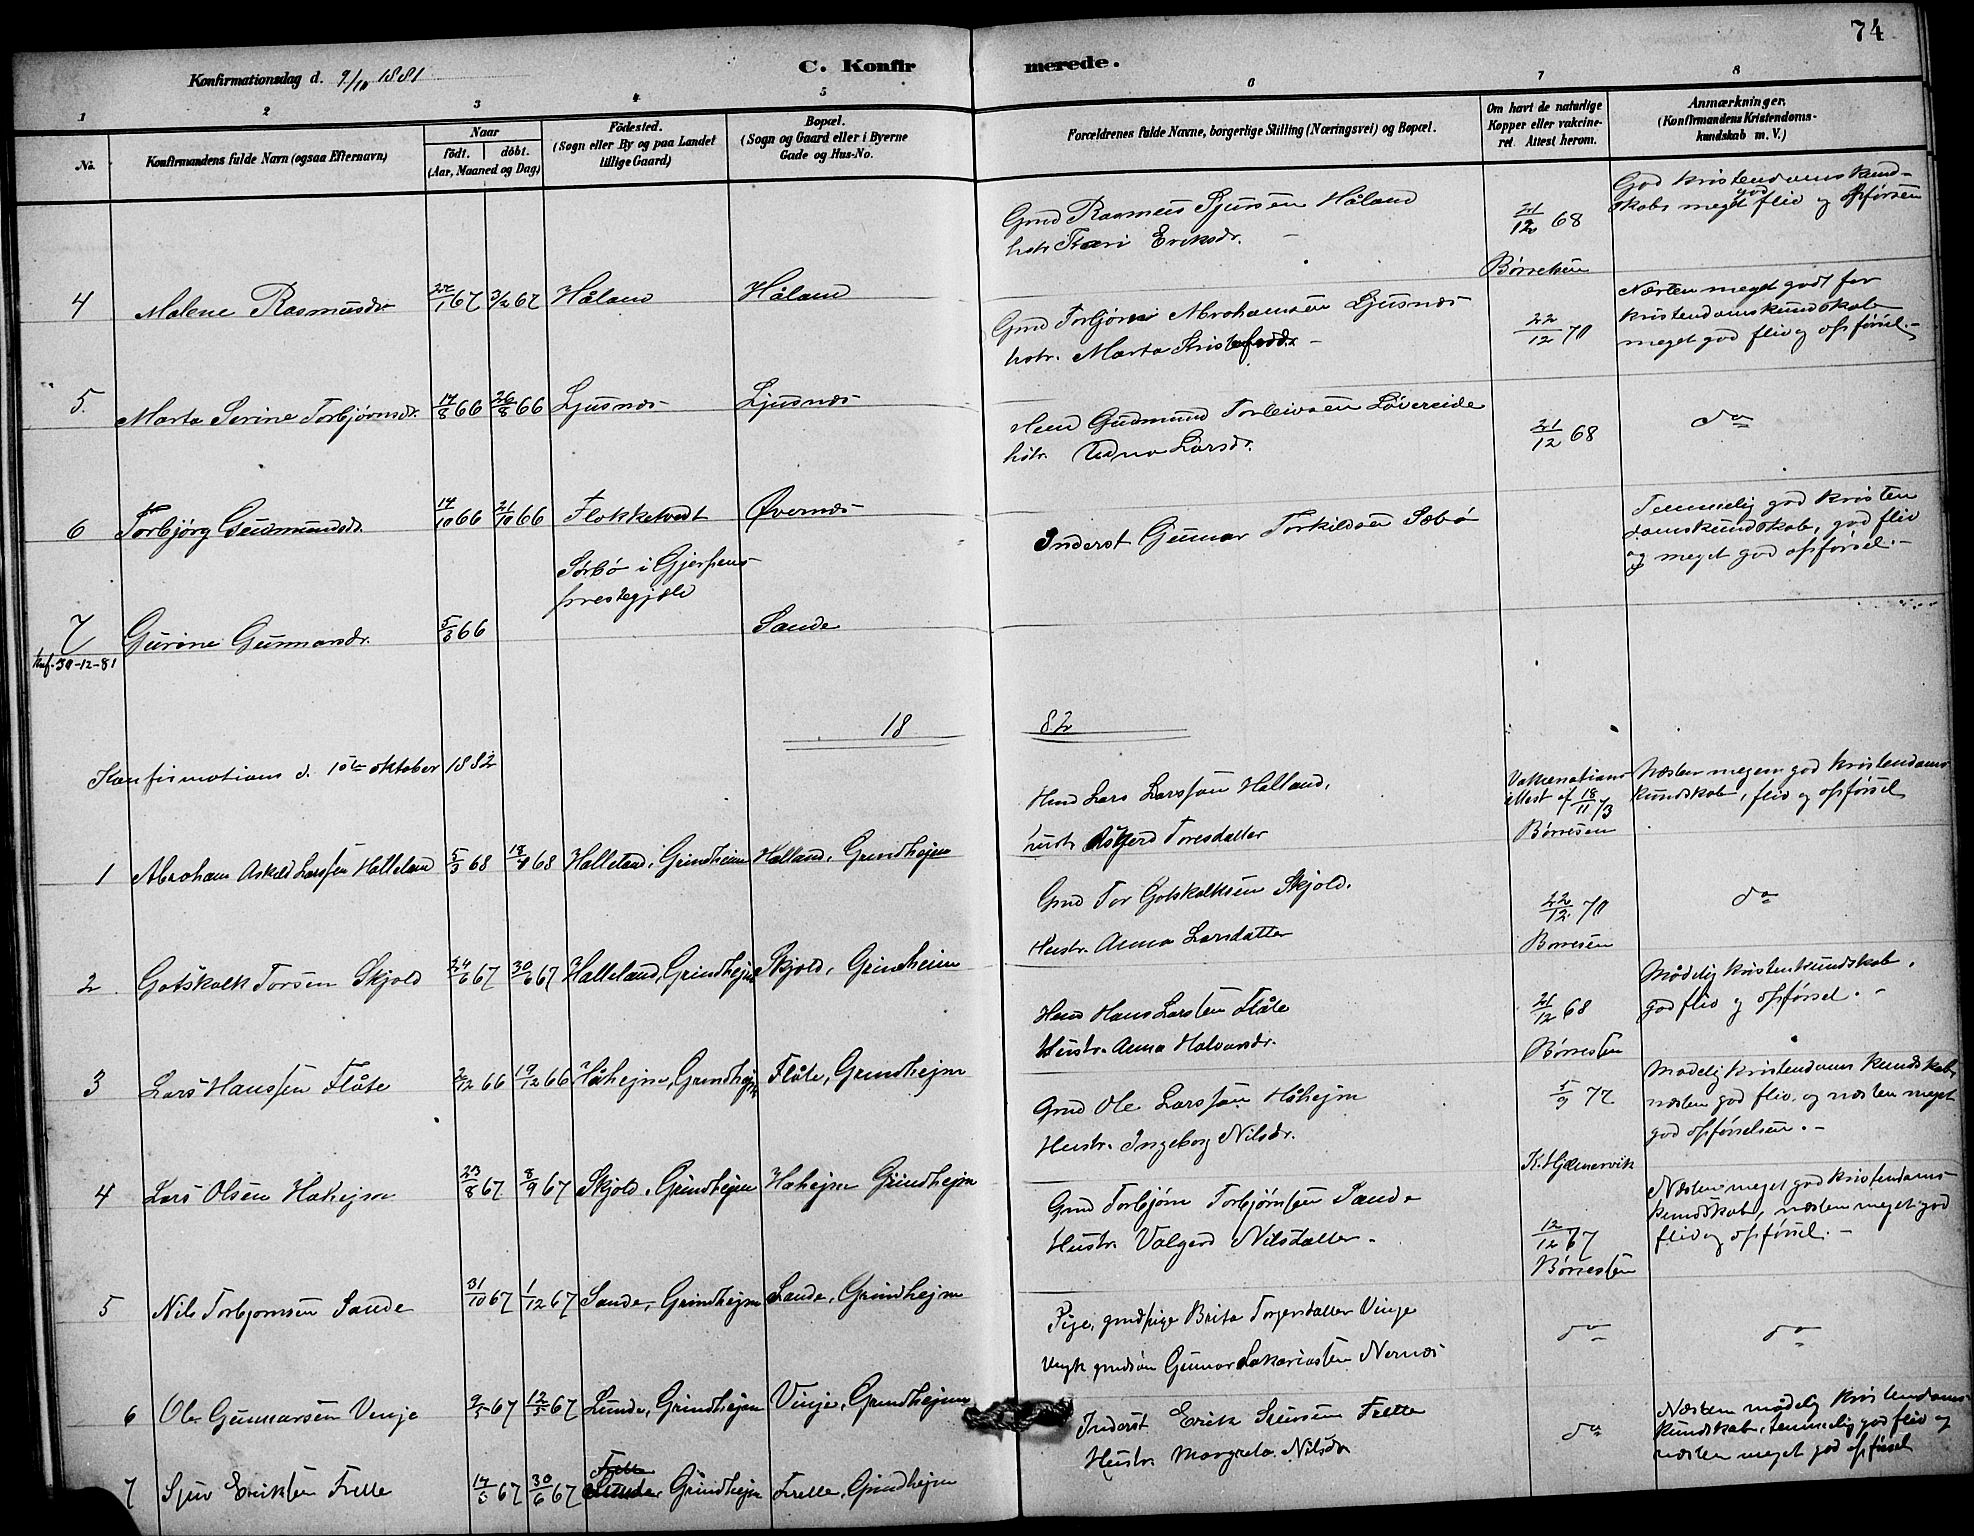 74
Konfirmationsdag d. 9/10 1881
C. Konfirmerede.
1 2 3 4 5 6 7 8
No.
Konfirmandens fulde Navn (ogsaa Efternavn)
Naar
födt. döbt.
(Aar, Maaned og Dag)
Födested.
(Sogn eller By og paa Landet
tillige Gaard)
Bopæl.
(Sogn og Gaard eller i Byerne
Gade og Hus-No.
Forældrenes fulde Navne, borgerlige Stilling (Næringsvei) og Bopæl.
Om havt de naturlige
Kopper eller vakcine-
ret. Attest herom.
Anmærkninger.
(Konfirmandens Kristendoms-
kundskab m. V.)
Gmd Rasmus Sjursen Håland
hstr. Kari Eriksdr.
21/12 68
Børresen
God kristendomskund-
skab meget god flid og opførsen
4 Malene Rasmusdr 3/2 67 Håland Håland
Gmd Torbjørn Abrahamsen Ljusnæs
hstr. Marta Kristofersdr.
22/12 70
Næsten meget godt for
kristendomskundskab
meget god flid og opførsel.-
5. Marta Serine Torbjørnsdr. 14/8 66 26/8 66 Ljusnæs Ljusnæs
Hmd Gudmund Torleivsen Løvereide
hstr. Larsdr.
21/12 68
do
6 Torbjørg Gudmundsdr. 14/10 66 21/10 66 Flokketvedt Øvernæs
Inderst Gunnar Torkildsen Sæbø
Temmelig god kristen
domskundskab, god flid
og meget god opførsel.-
Sørbø i Gjerpens
prestegjæld
7 Gurine Gunnarsdr. 5/3 66 Sande
Knf. 30-12-81
18 82
Konfirmations d. 1ste oktober 1882
Hmd Lars Larssøn Halland,
hustr. Asgjerd Toresdatter
Vakcinations
attest af 18/11 73
Børresen
Næsten megen god kristendoms
kundskab, flid og opførsel
1 Abraham Askild Larssen Halleland 5/3 68 68 Halleland, Grindheim Halland, Grindhejm
Gmd Tor Gotskalksen Skjold.
Hustr. Anna Larsdatter
22/12 70
Børresen
do
2 Gotskalk Torsen Skjold 24/6 67 30/6 67 Halleland, Grindhejm Skjold, Grindheim
Hmd Hans Larssen Flåte
Hustr. Anna Halvorsdr.
21/12 68
Børresen
Mådelig kristenkundskab,
god flid og opførsel.-
3 Lars Hanssen Flåte 2/12 66 19/12 66 Håhejm, Grindhejm Flåte, Grindhejm
Gmd Ole Larssøn Håhejm
Hustr. Ingeborg Nilsdr.
5/9 72
K. Hjælmervik
Mådelig kristendoms kundskab,
næsten god flid, og næsten meget
god opførselsen.-
4 Lars Olsen Håhejm 23/8 67 8/9 67 Skjold, Grindhejm Håhejm Grindhejm
Gmd Torbjørn Torbjørnsen Sande
Hustr. Valgerd Nilsdatter.
12/12 67
Børresen
Næsten meget god kristendoms
kundskab, næsten meget god
flid og opførsel.-
5 Nils Torbjørnsen Sande 31/10 67 1/12 67 Sande, Grindhejm Sande, Grindhejm
Pige, gmdpige Brita Torgersdatter Vinje
Ungk. gmdsøn Gunnar Sakariassen Nernæs
do
do
6 Ole Gunnarsen Vinje 9/5 67 12/5 67 Lunde, Grindhejm Vinje, Grindhejm
Inderst Erik Sjursen Frette
Hustr. Margreta Nilsdr
do
Næsten mådelig kristendoms-
kundskab, temmelig god flid og
næsten meget god opførsel
7 Sjur Eriksen Frette 67 30/6 67 Frette Grindhejm Frette, Grindhejm